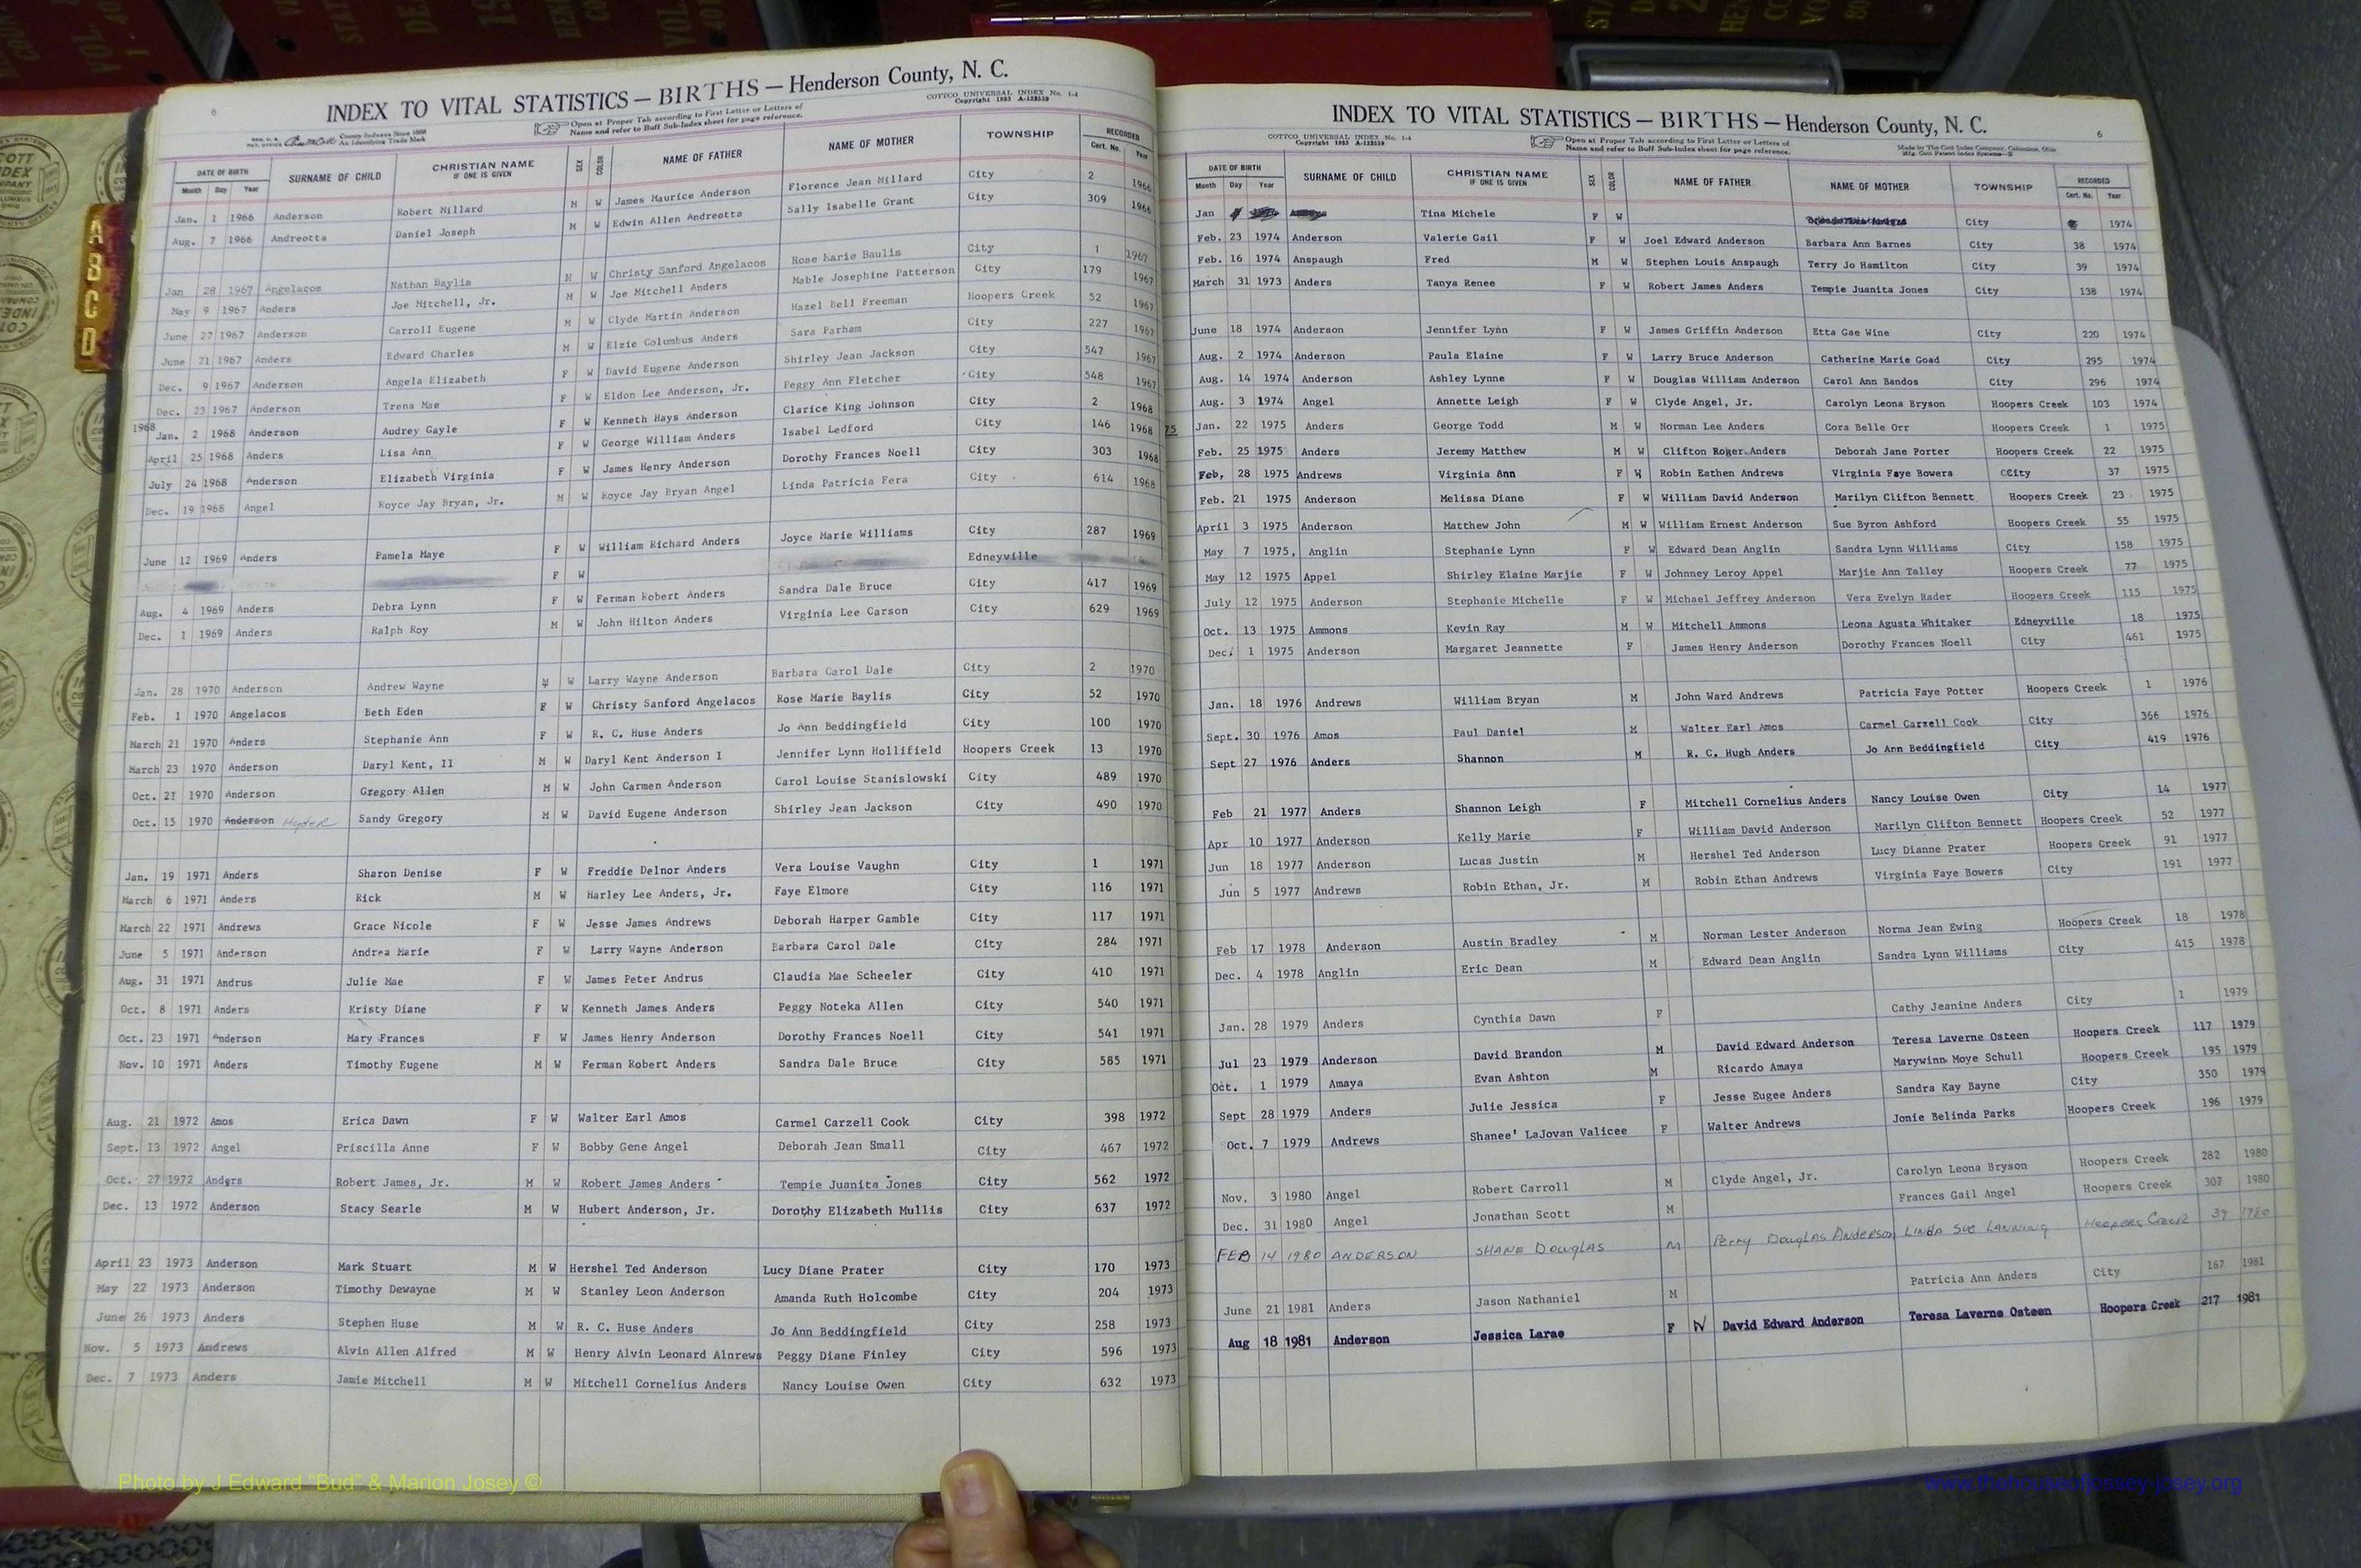 INDEX TO VITAL STATISTICS — BIRTHS — Henderson County, N. C.
COTTCO UNIVERSAL INDEX No. 1-4
Copyright 1953 A-128559
Open at Proper Tab according to First Letter or Letters of
Name and refer to Buff Sub-Index sheet for page reference.
County Indexes Since 1888
An Identifying Trade Mark
DATE OF BIRTH SURNAME OF CHILD CHRISTIAN NAME IF ONE IS GIVEN SEX COLOR NAME OF FATHER NAME OF MOTHER TOWNSHIP RECORDED
Month Day Year Cert. No. Year
Jan. 1 1966 Anderson Robert Millard M W James Maurice Anderson Florence Jean Millard City 2 1966
Aug. 7 1966 Andreotta Daniel Joseph M W Edwin Allen Andreotta Sally Isabelle Grant City 309 1966
Jan 28 1967 Angelacos Nathan Baylis M W Christy Sanford Angelacos Rose Marie Baulis City 1 1967
May 9 1967 Anders Joe Mitchell, Jr. M W Joe Mitchell Anders Mable Josephine Patterson City 179 1967
June 27 1967 Anderson Carroll Eugene M W Clyde Martin Anderson Hazel Bell Freeman Hoopers Creek 52 1967
June 21 1967 Anders Edward Charles M W Elzie Columbus Anders Sara Parham City 227 1967
Dec. 9 1967 Anderson Angela Elizabeth F W David Eugene Anderson Shirley Jean Jackson City 547 1967
Dec. 23 1967 Anderson Trena Mae F W Eldon Lee Anderson, Jr. Peggy Ann Fletcher City 548 1967
1968 Jan. 2 1968 Anderson Audrey Gayle F W Kenneth Hays Anderson Clarice King Johnson City 2 1968
April 25 1968 Anders Lisa Ann F W George William Anders Isabel Ledford City 146 1968
July 24 1968 Anderson Elizabeth Virginia F W James Henry Anderson Dorothy Frances Noell City 303 1968
Dec. 19 1968 Angel Royce Jay Bryan, Jr. M W Royce Jay Bryan Angel Linda Patricia Fera City 614 1968
June 12 1969 Anders Pamela Maye F W William Richard Anders Joyce Marie Williams City 287 1969
F W Edneyville
Aug. 4 1969 Anders Debra Lynn F W Ferman Robert Anders Sandra Dale Bruce City 417 1969
Dec. 1 1969 Anders Ralph Roy M W John Hilton Anders Virginia Lee Carson City 629 1969
Jan. 28 1970 Anderson Andrew Wayne W Larry Wayne Anderson Barbara Carol Dale City 2 1970
Feb. 1 1970 Angelacos Beth Eden F W Christy Sanford Angelacos Rose Marie Baylis City 52 1970
March 21 1970 Anders Stephanie Ann F W R. C. Huse Anders Jo Ann Beddingfield City 100 1970
March 23 1970 Anderson Daryl Kent, II M W Daryl Kent Anderson I Jennifer Lynn Hollifield Hoopers Creek 13 1970
Oct. 21 1970 Anderson Gregory Allen M W John Carmen Anderson Carol Louise Stanislowski City 489 1970
Oct. 15 1970 Anderson Hyder Sandy Gregory M W David Eugene Anderson Shirley Jean Jackson City 490 1970
Jan. 19 1971 Anders Sharon Denise F W Freddie Delnor Anders Vera Louise Vaughn City 1 1971
March 6 1971 Anders Rick M W Harley Lee Anders, Jr. Faye Elmore City 116 1971
March 22 1971 Andrews Grace Nicole F W Jesse James Andrews Deborah Harper Gamble City 117 1971
June 5 1971 Anderson Andrea Marie F W Larry Wayne Anderson Barbara Carol Dale City 284 1971
Aug. 31 1971 Andrus Julie Mae F W James Peter Andrus Claudia Mae Scheeler City 410 1971
Oct. 8 1971 Anders Kristy Diane F W Kenneth James Anders Peggy Noteka Allen City 540 1971
Oct. 23 1971 Anderson Mary Frances F W James Henry Anderson Dorothy Frances Noell City 541 1971
Nov. 10 1971 Anders Timothy Eugene M W Ferman Robert Anders Sandra Dale Bruce City 585 1971
Aug. 21 1972 Amos Erica Dawn F W Walter Earl Amos Carmel Carzell Cook City 398 1972
Sept. 13 1972 Angel Priscilla Anne F W Bobby Gene Angel Deborah Jean Small City 467 1972
Oct. 27 1972 Anders Robert James, Jr. M W Robert James Anders Tempie Juanita Jones City 562 1972
Dec. 13 1972 Anderson Stacy Searle M W Hubert Anderson, Jr. Dorothy Elizabeth Mullis City 637 1972
April 23 1973 Anderson Mark Stuart M W Hershel Ted Anderson Lucy Diane Prater City 170 1973
May 22 1973 Anderson Timothy Dewayne M W Stanley Leon Anderson Amanda Ruth Holcombe City 204 1973
June 26 1973 Anders Stephen Huse M W R. C. Huse Anders Jo Ann Beddingfield City 258 1973
Nov. 5 1973 Andrews Alvin Allen Alfred M W Henry Alvin Leonard Alnrews Peggy Diane Finley City 596 1973
Dec. 7 1973 Anders Jamie Mitchell M W Mitchell Cornelius Anders Nancy Louise Owen City 632 1973
A
B
C
D
INDEX TO VITAL STATISTICS — BIRTHS — Henderson County, N. C.
6
COTTCO UNIVERSAL INDEX No. 1-4
Copyright 1953 A-128559
Open at Proper Tab according to First Letter or Letters of
Name and refer to Buff Sub-Index sheet for page reference.
Made by The Cott Index Company, Columbus, Ohio
DATE OF BIRTH SURNAME OF CHILD CHRISTIAN NAME IF ONE IS GIVEN SEX COLOR NAME OF FATHER NAME OF MOTHER TOWNSHIP RECORDED
Month Day Year Cert. No. Year
Jan Tina Michele F W City 1974
Feb. 23 1974 Anderson Valerie Gail F W Joel Edward Anderson Barbara Ann Barnes City 38 1974
Feb. 16 1974 Anspaugh Fred M W Stephen Louis Anspaugh Terry Jo Hamilton City 39 1974
March 31 1973 Anders Tanya Renee F W Robert James Anders Tempie Juanita Jones City 138 1974
June 18 1974 Anderson Jennifer Lynn F W James Griffin Anderson Etta Gae Wine City 220 1974
Aug. 2 1974 Anderson Paula Elaine F W Larry Bruce Anderson Catherine Marie Goad City 295 1974
Aug. 14 1974 Anderson Ashley Lynne F W Douglas William Anderson Carol Ann Bandos City 296 1974
Aug. 3 1974 Angel Annette Leigh F W Clyde Angel, Jr. Carolyn Leona Bryson Hoopers Creek 103 1974
75 Jan. 22 1975 Anders George Todd M W Norman Lee Anders Cora Belle Orr Hoopers Creek 1 1975
Feb. 25 1975 Anders Jeremy Matthew M W Clifton Roger Anders Deborah Jane Porter Hoopers Creek 22 1975
Feb, 28 1975 Andrews Virginia Ann F W Robin Eathen Andrews Virginia Faye Bowers CCity 37 1975
Feb. 21 1975 Anderson Melissa Diane F W William David Anderson Marilyn Clifton Bennett Hoopers Creek 23 1975
April 3 1975 Anderson Matthew John M W William Ernest Anderson Sue Byron Ashford Hoopers Creek 55 1975
May 7 1975, Anglin Stephanie Lynn F W Edward Dean Anglin Sandra Lynn Williams City 158 1975
May 12 1975 Appel Shirley Elaine Marjie F W Johnney Leroy Appel Marjie Ann Talley Hoopers Creek 77 1975
July 12 1975 Anderson Stephanie Michelle F W Michael Jeffrey Anderson Vera Evelyn Rader Hoopers Creek 115 1975
Oct. 13 1975 Ammons Kevin Ray M W Mitchell Ammons Leona Agusta Whitaker Edneyville 18 1975
Dec. 1 1975 Anderson Margaret Jeannette F James Henry Anderson Dorothy Frances Noell City 461 1975
Jan. 18 1976 Andrews William Bryan M John Ward Andrews Patricia Faye Potter Hoopers Creek 1 1976
Sept. 30 1976 Amos Paul Daniel M Walter Earl Amos Carmel Carzell Cook City 366 1976
Sept 27 1976 Anders Shannon M R. C. Hugh Anders Jo Ann Beddingfield City 419 1976
Feb 21 1977 Anders Shannon Leigh F Mitchell Cornelius Anders Nancy Louise Owen City 14 1977
Apr 10 1977 Anderson Kelly Marie F William David Anderson Marilyn Clifton Bennett Hoopers Creek 52 1977
Jun 18 1977 Anderson Lucas Justin M Hershel Ted Anderson Lucy Dianne Prater Hoopers Creek 91 1977
Jun 5 1977 Andrews Robin Ethan, Jr. M Robin Ethan Andrews Virginia Faye Bowers City 191 1977
Feb 17 1978 Anderson Austin Bradley M Norman Lester Anderson Norma Jean Ewing Hoopers Creek 18 1978
Dec. 4 1978 Anglin Eric Dean M Edward Dean Anglin Sandra Lynn Williams City 415 1978
Jan. 28 1979 Anders Cynthia Dawn F Cathy Jeanine Anders City 1 1979
Jul 23 1979 Anderson David Brandon M David Edward Anderson Teresa Laverne Osteen Hoopers Creek 117 1979
Oct. 1 1979 Amaya Evan Ashton M Ricardo Amaya Marywinn Moye Schull Hoopers Creek 195 1979
Sept 28 1979 Anders Julie Jessica F Jesse Eugee Anders Sandra Kay Bayne City 350 1979
Oct. 7 1979 Andrews Shanee' LaJovan Valicee F Walter Andrews Jonie Belinda Parks Hoopers Creek 196 1979
Nov. 3 1980 Angel Robert Carroll M Clyde Angel, Jr. Carolyn Leona Bryson Hoopers Creek 282 1980
Dec. 31 1980 Angel Jonathan Scott M Frances Gail Angel Hoopers Creek 307 1980
FEB 14 1980 ANDERSON SHANE DouglAS M Perry Douglas Anderson LINDA SUE LANNING Hoopers Creek 39 1980
June 21 1981 Anders Jason Nathaniel M Patricia Ann Anders City 167 1981
Aug 18 1981 Anderson Jessica Larae F W David Edward Anderson Teresa Laverne Osteen Hoopers Creek 217 1981
Photo by J Edward "Bud" & Marion Josey ©
www.thehouseofjossey-josey.org